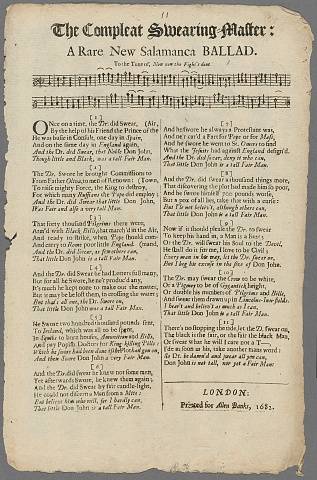 11
The Compleat Swearing-Master:
A Rare New Salamanca BALLAD.
To the Tune of, Now now the Fight's done
[1]
ONce on a time, the Dr. did Swear,
By the help of his Friend the Prince of the (Air,
He was busie in Consult, one day in Spain,
And on the same day in England again,
And the Dr. did Swear, that Noble Don John,
Though little and Black, was a tall Fair Man.
[2]
The Dr. Swore he brought Commissions
From Father Oliva, to men of Renown; (Town,
To raise mighty Force, the King to destroy,
For which many Ruffians the Pope did employ;
And the Dr. did Swear that little Don John,
Was Fair and also a very tall Man.
[3]
That forty thousand Pilgrims there were,
Arm'd with Black Bills, that march'd in the Air,
And ready to strike, when Pope should com-
And carry to Rome poor little England. (mand,
And the Dr. did Swear, as few others can,
That little Don John was a tall Fair Man.
[4]
And the Dr. did Swear he had Letters full many,
But for all he Swore, he ne'r produc'd any,
It's much he kept none to make out the matter,
But it may be he lost them, in crossing the water;
But that's all one, the Dr. Swore on,
That little Don John was a tall Fair Man.
[5]
He Swore two hundred thousand pounds sent,
To Ireland, which was all to be spent,
In Spurrs to learn housen, Ammunition and Bills,
And pay Popish Doctors for King-killing Pills;
And then did Swore Don John a very Fair Man.
[6]
And the Dr. did swear he knew not some man,
Yet afterwards Swore, he knew them again;
And the Dr. did Swear by fair candle-light,
He could not discern a Man from a Mite:
But believe him who will, for I hardly can,
That little Don John is a tall Fair Man.
[7]
And he swore he always a Protestant was,
And ne'r car'd a Fart for Pope or for Mass,
And he swore he went to St. Omers to find
What the Jesuits had against England design'd.
And the Dr. did swear, deny it who can,
That little Don John is a tall Fair Man.
[8]
And the Dr. did swear a thousand things more,
That discovering the plot had made him so poor,
And he swore himself 700 pounds worse,
But a pox of all lies, take that with a curse:
But I'le not believe't, although others can,
That little Don John is a tall Fair Man.
[9]
Now it should pleese the Dr. to swear
To keep his hand in, a Man is a Bear;
Or the Dr. will swear his Soul to the Devil,
He shall do it for me, I love to be Civil;
Every man in his way, let the Dr. swear on,
But I beg his excuse in the face of Don John.
[10]
The Dr. may swear the Crow to be white,
Or a Pigmey to be of Gigantick height,
Or double his numbers of Pilgrims and Bills,
And swear them drawn up in Lincolns-Inn-fields:
I hear't and believ't as much as I can,
That little Don John is a tall Fair Man.
[11]
There's no stopping the tide, let the Dr. swear on,
The black is the fair, or the fair the black Man,
Or swear what he will I care not a T—
I'de as soon as his, take another mans word:
So Dr. be damn'd and swear all you can,
Don John is not tall, nor yet a Fair Man!
LONDON:
Printed for Allen Banks, 1682.